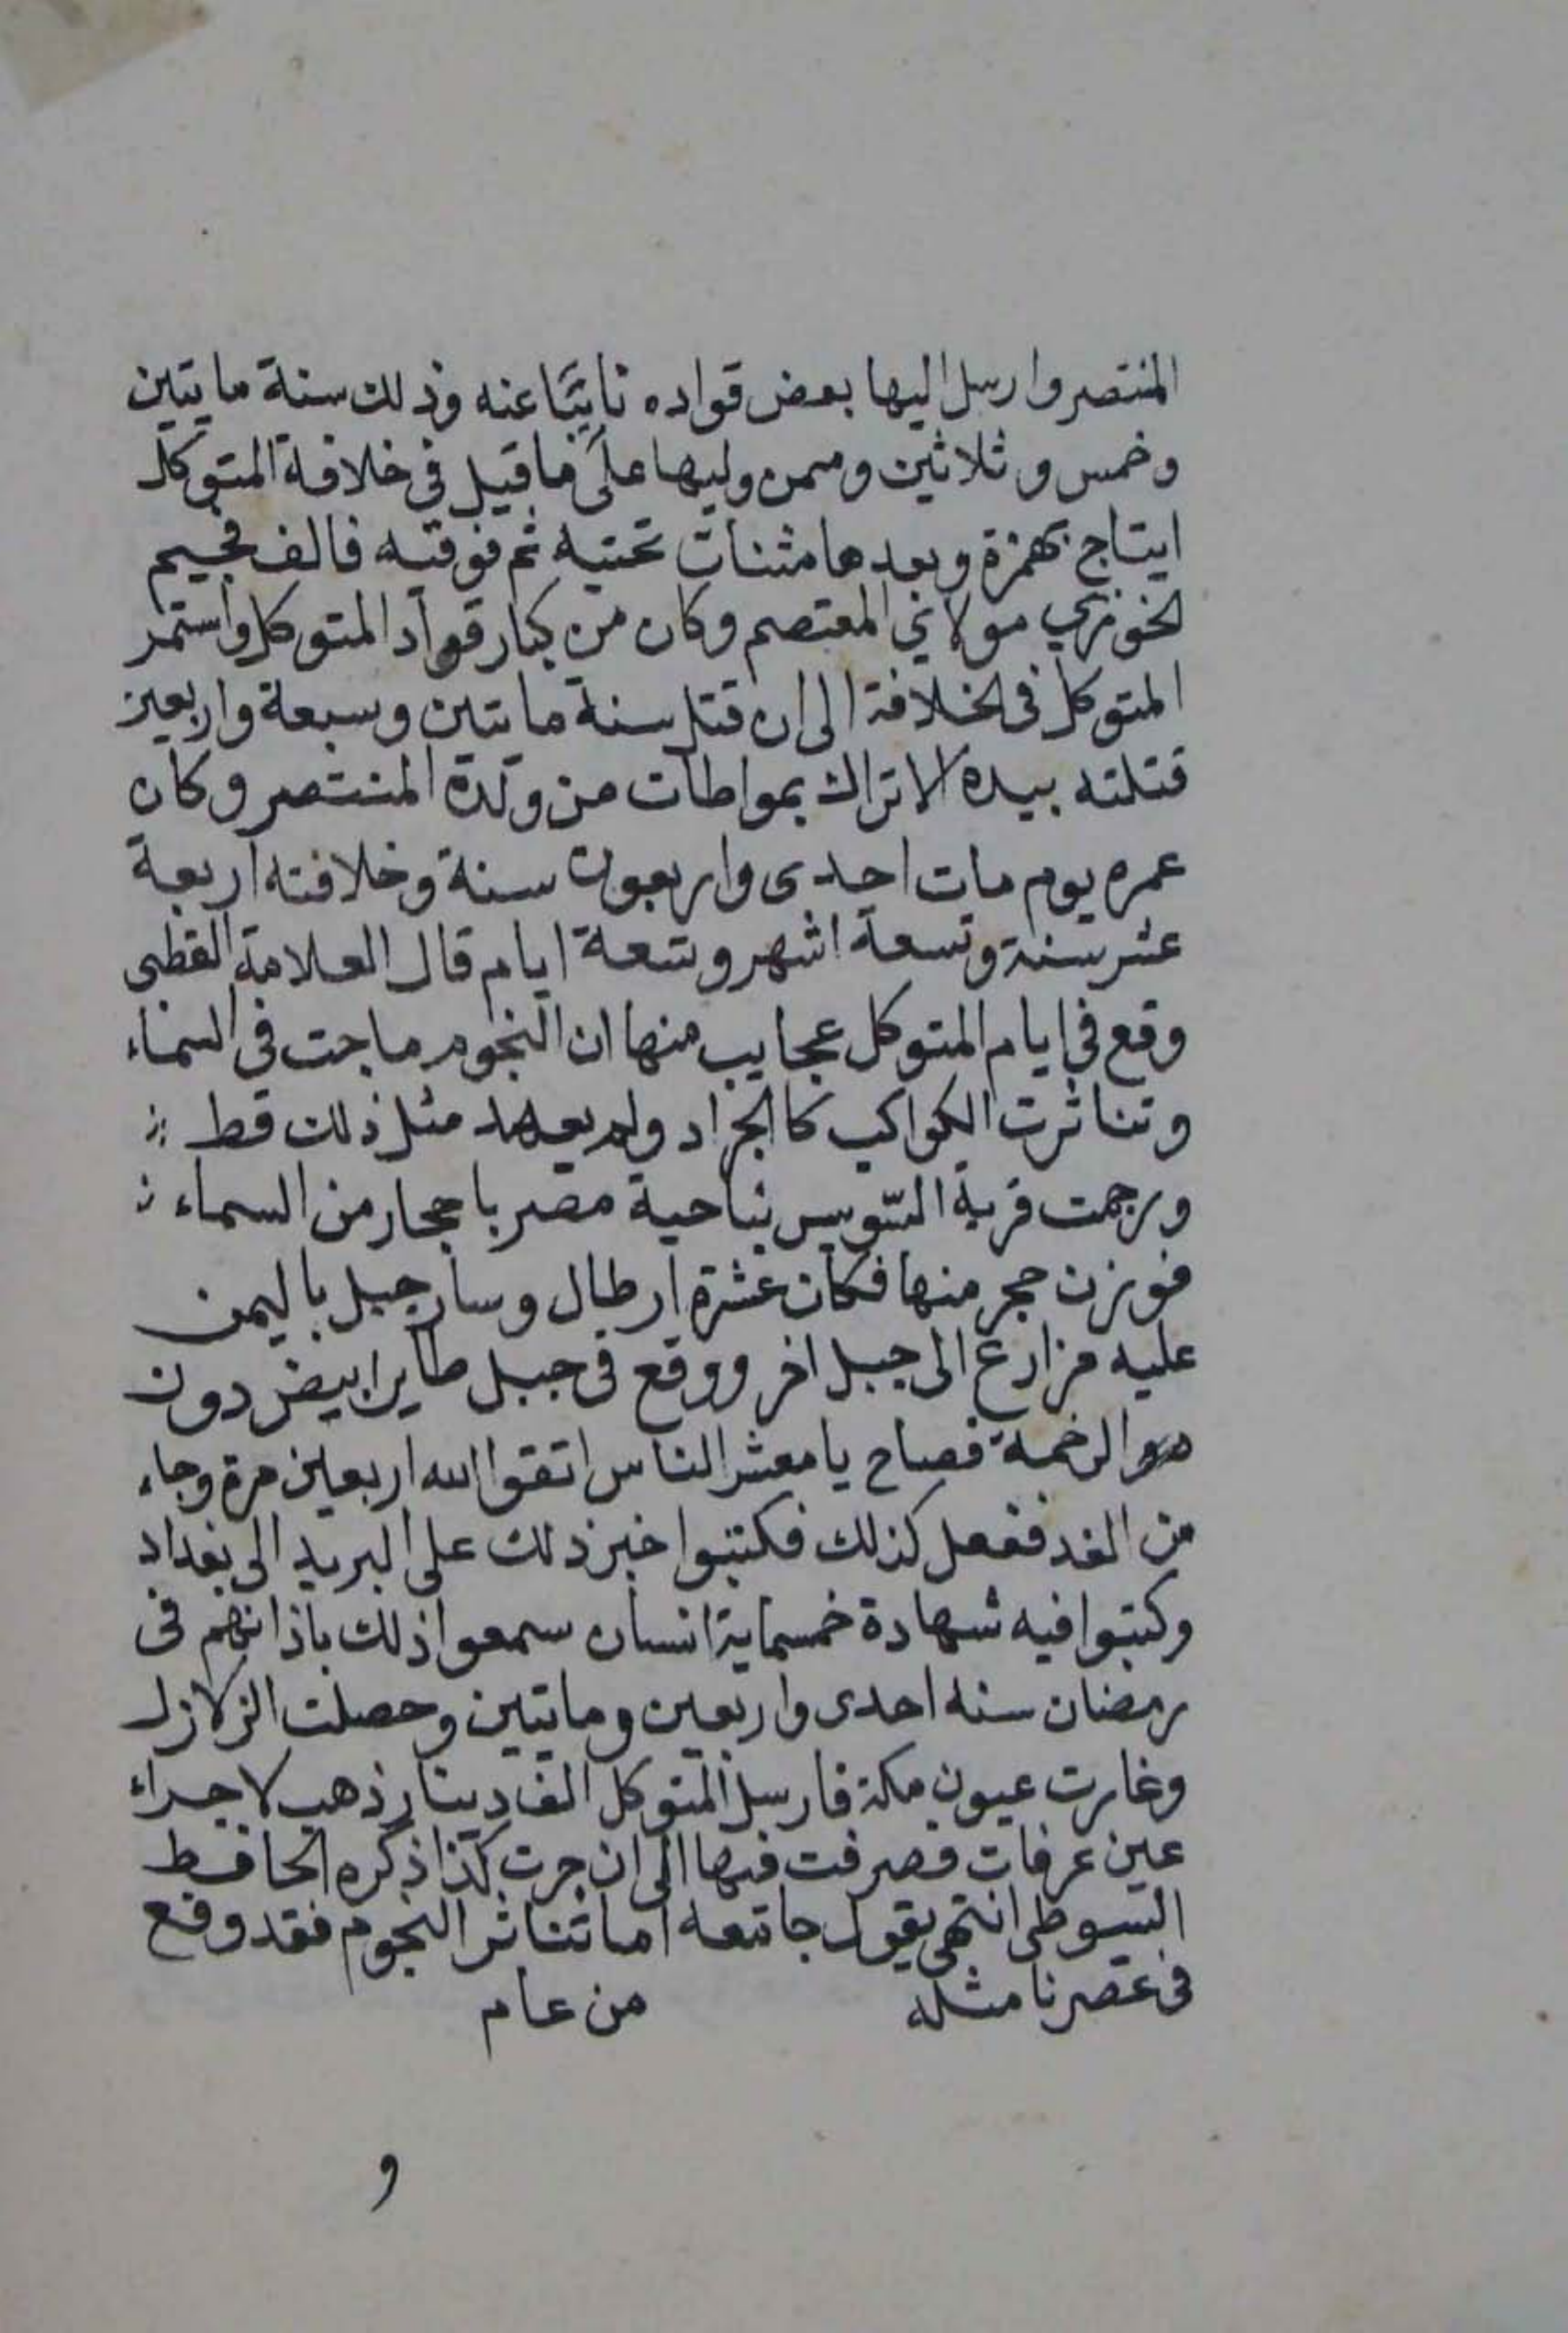 المنتصر وارسل اليها بعض قواده نايبًا عنه وذلك سنة مايتين
وخمس وثلاثين وممن وليها على ما قيل في خلافة المتوكل
ايتاج بهمزة وبعدها مثنات تحتيه ثم فوقيه فالف فجيم
الخوزري مولاي المعتصم وكان من كبار قواد المتوكل واستمر
المتوكل في الخلافة الى ان قتل سنة مايتين وسبعة واربعين
قتلته بيده الاتراك بمواطات من ولدة المنتصر وكان
عمره يوم مات احدى واربعون سنة وخلافته اربعة
عشر سنة وتسعة اشهر وتسعة ايام قال العلامة القطبى
وقع في ايام المتوكل عجايب منها ان النجوم ماجت في السماء
وتناثرت الكواكب كالجراد ولم يعهد مثل ذلك قط
ورجمت قرية السّويس بناحية مصر باحجار من السماء
فوزن حجر منها فكان عشرة ارطال وسار جبل باليمن
عليه مزارع الى جبل اخر ووقع فى جبل طاير ابيض دون
الرخمة فصاح يا معشر الناس اتقوا الله اربعين مرة وجاء
من الغد ففعل كذلك فكتبوا خبر ذلك على البريد الى بغداد
وكتبوا فيه شهادة خمسماية انسان سمعوا ذلك باذانهم فى
رمضان سنه احدى واربعين ومايتين وحصلت الزلازل
وغارت عيون مكة فارسل المتوكل الف دينار ذهب لاجراء
عين عرفات فصرفت فيها الى ان جرت كذا ذكره الحافظ
السيوطى انتهى يقول جامعه اما تناثر النجوم فقد وقع
فى عصرنا مثله من عام
و